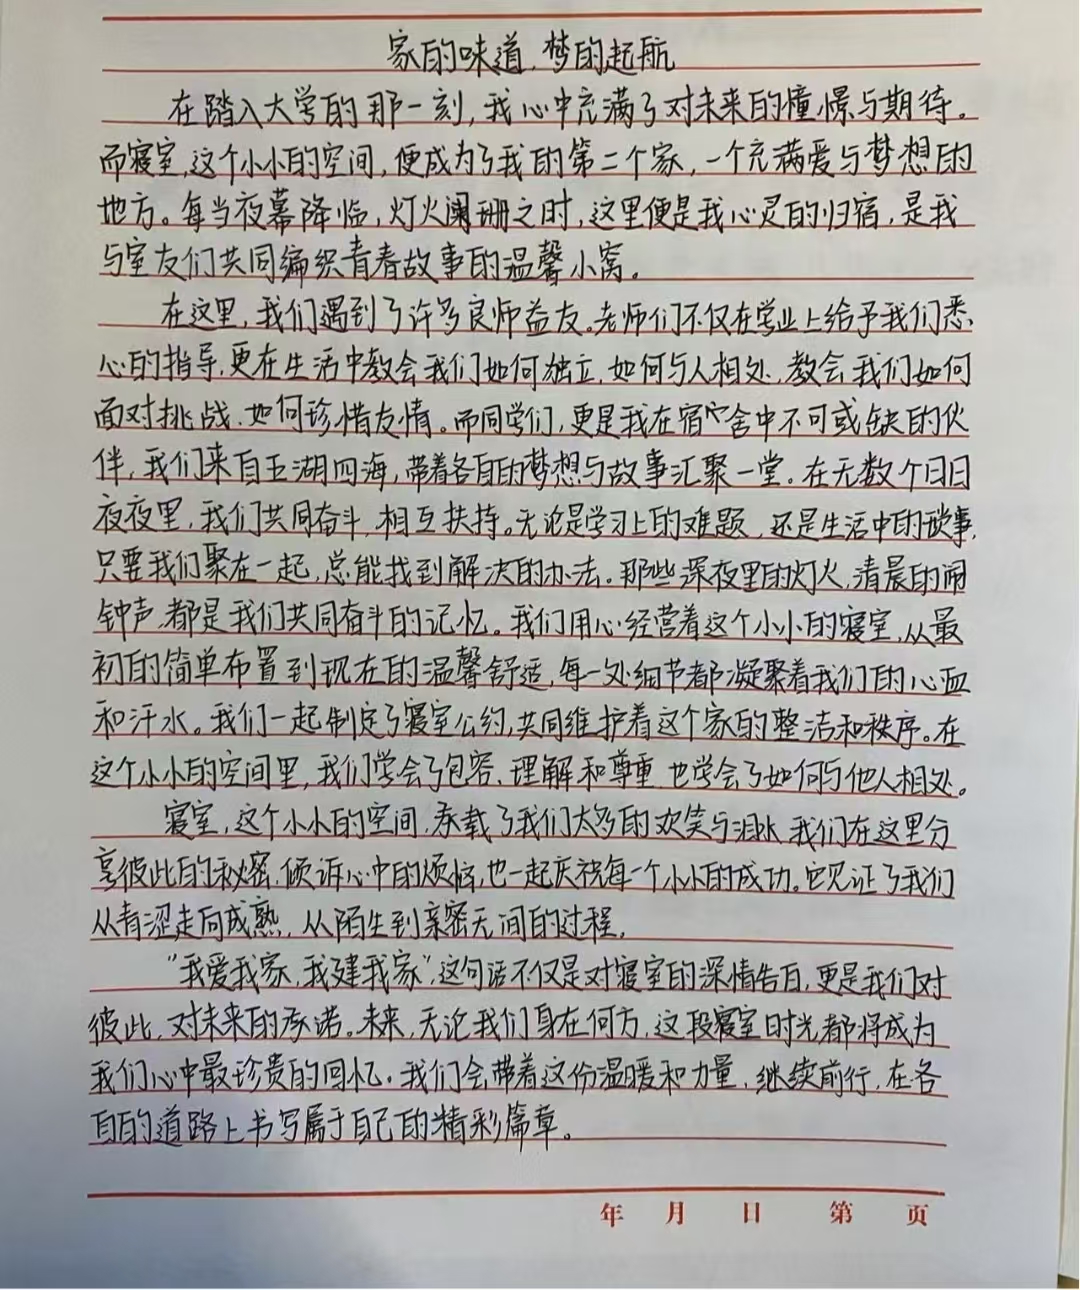 家的味道,梦的起航
在踏入大学的那一刻,我心中充满了对未来的憧憬与期待。
而寝室,这个小小的空间,便成为了我的第二个家,一个充满爱与梦想的
地方。每当夜幕降临,灯火阑珊之时,这里便是我心灵的归宿,是我
与室友们共同编织青春故事的温馨小窝。
在这里,我们遇到了许多良师益友。老师们不仅在学业上给予我们悉
心的指导,更在生活中教会我们如何独立,如何与人相处,教会我们如何
面对挑战、如何珍惜友情。而同学们,更是我在宿舍中不可或缺的伙
伴,我们来自五湖四海,带着各自的梦想与故事汇聚一堂。在无数个日日
夜夜里,我们共同奋斗,相互扶持。无论是学习上的难题,还是生活中的琐事,
只要我们聚在一起,总能找到解决的办法。那些深夜里的灯火,清晨的闹
钟声,都是我们共同奋斗的记忆。我们用心经营着这个小小的寝室,从最
初的简单布置到现在的温馨舒适,每一处细节都凝聚着我们的心血
和汗水。我们一起制定了寝室公约,共同维护着这个家的整洁和秩序。在
这个小小的空间里,我们学会了包容、理解和尊重,也学会了如何与他人相处。
寝室,这个小小的空间,承载了我们太多的欢笑与泪水,我们在这里分
享彼此的秘密,倾诉心中的烦恼,也一起庆祝每一个小小的成功。它见证了我们
从青涩走向成熟,从陌生到亲密无间的过程,
“我爱我家,我建我家”,这句话不仅是对寝室的深情告白,更是我们对
彼此,对未来的承诺。未来,无论我们身在何方,这段寝室时光都将成为
我们心中最珍贵的回忆。我们会带着这份温暖和力量,继续前行,在各
自的道路上书写属于自己的精彩篇章。
年 月 日 第 页